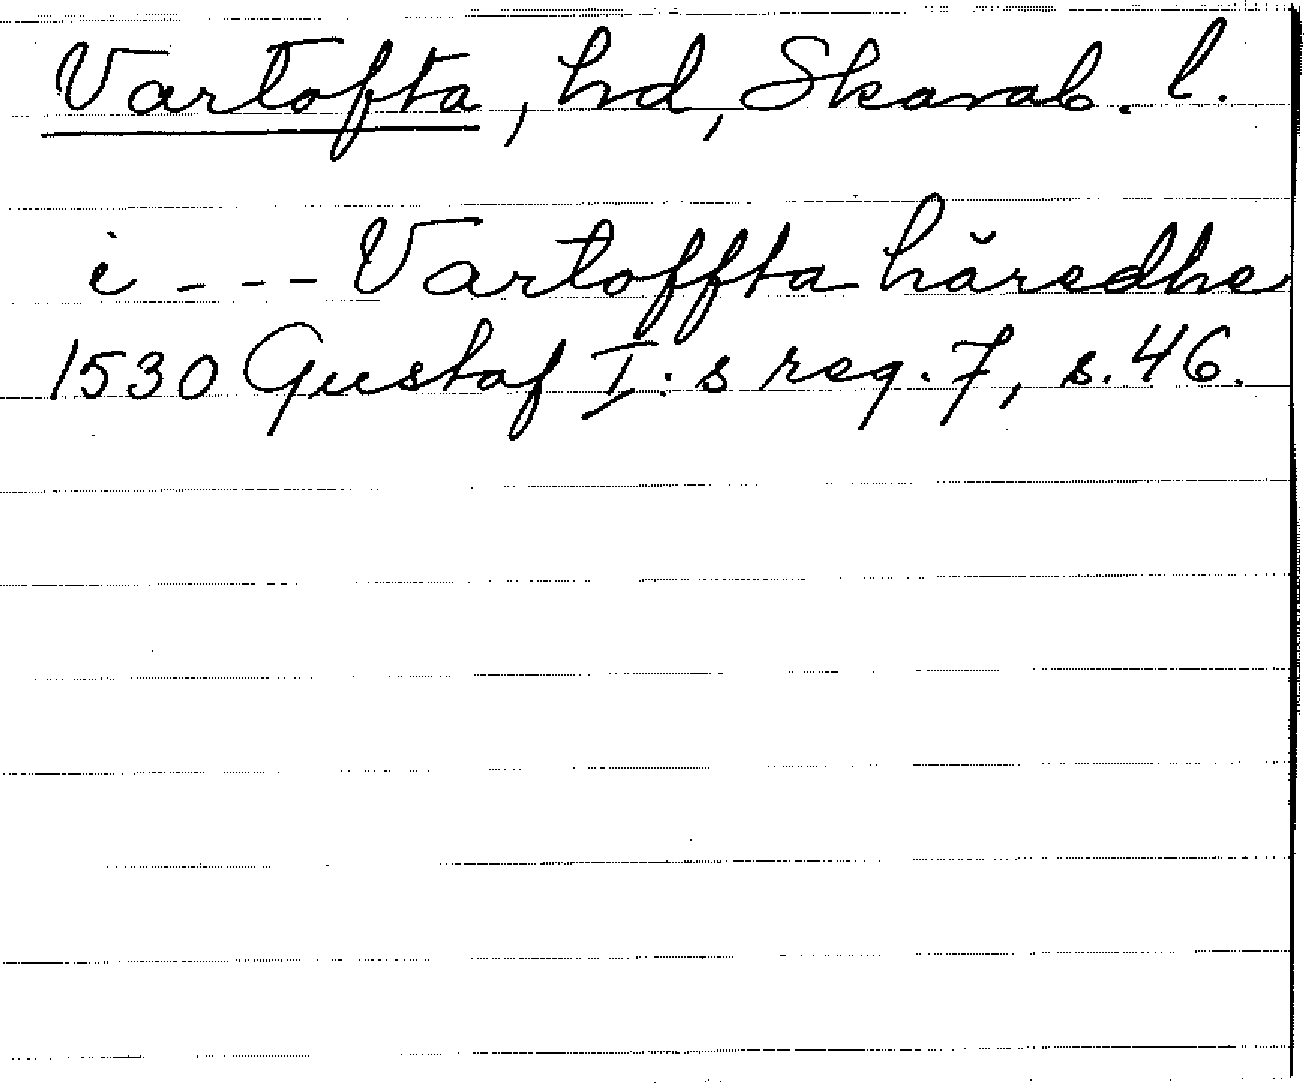 Vartofta, hd, Skarab. l.
i --- Vartoffta häredhe
1530 Gustaf I:s reg. 7, s. 46.